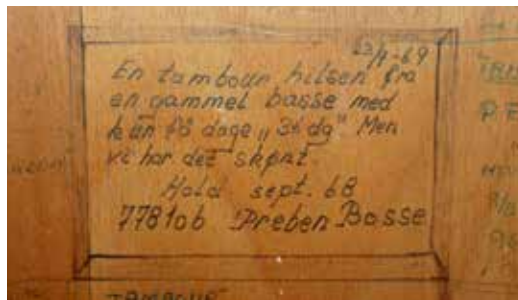 23/4-69
En tambour hilsen fra
en gammel basse med
kun få dage „36 dg" Men
vi har det skønt.
Hold sept. 68
778106 Preben Basse
TAMBOUR